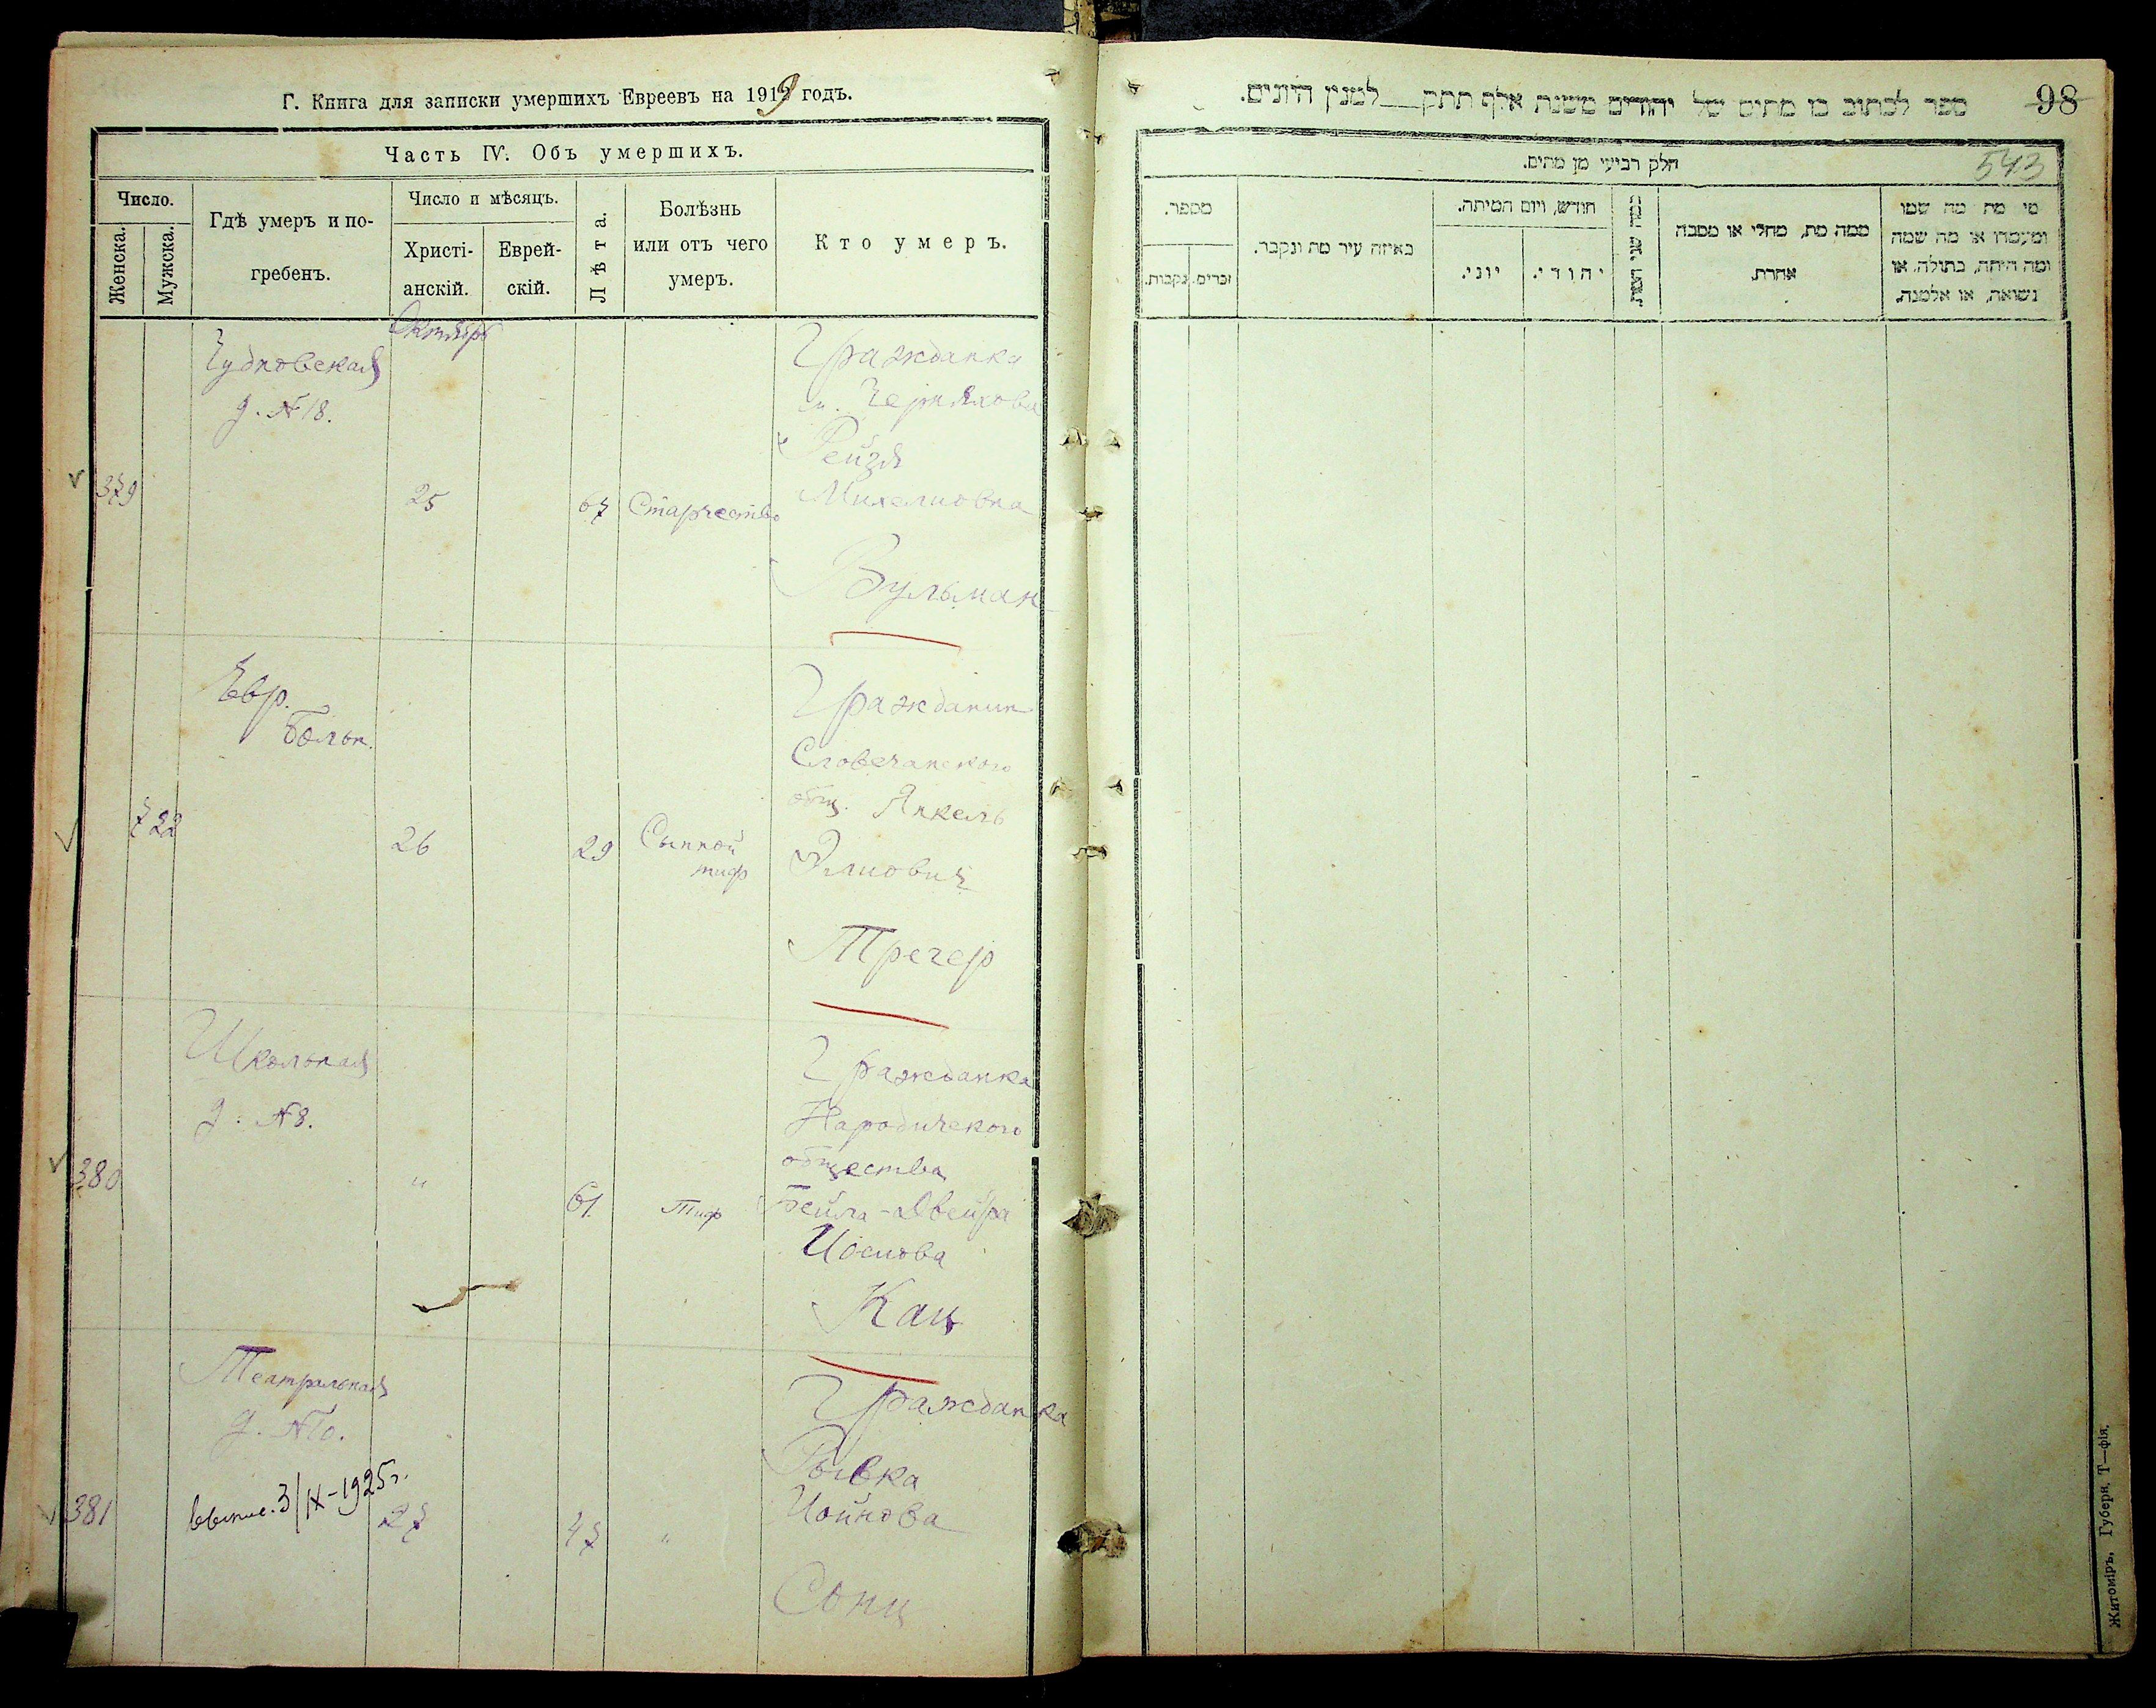 Г. Книга для записки умершихъ Евреевъ на 1919 годъ.
Часть IV. Объ умершихъ.
Число.
Женска.
Мужска.
Гдѣ умеръ и по-
гребенъ.
Число и мѣсяцъ.
Христі-
анскій.
Еврей-
скій.
Лѣта.
Болѣзнь
или отъ чего
умеръ.
Кто умеръ.
Октябрь
Чудновская
д. № 18.
379
25
67
Старчество
Гражданка
м. Черняхова
Рейзя
Михелиовна
Вульман
Евр.
Больн.
722
26
29
Сыпной
тиф
Гражданин
Словечанского
общ. Янкель
Элиович
Тречер
Школьная
д. № 8.
380
"
61
Тиф
Гражданка
Народичского
общества
Бейла-Двейра
Иосиова
Кац
Театральная
д. № 10.
выпис. 3/IX-1925 г.
381
27
47
"
Гражданка
Рывка
Иойнова
Сонц
98
ספר לכתוב בו מתים של יהודים משנת אלף תתק — למנין היונים.
543
חלק רביעי מן מתים.
מספר.
זכרים.
נקבות.
באיזה עיר מת ונקבר.
חודש, ויום המיתה.
יוני.
יהודי.
ממה מת, מחלי או מסבה
אחרת.
מי מת מה שמו
ומעמדו או מה שמה
ומה היתה, בתולה, או
נשואה, או אלמנה.
Житоміръ, Губерн. Т—фія.